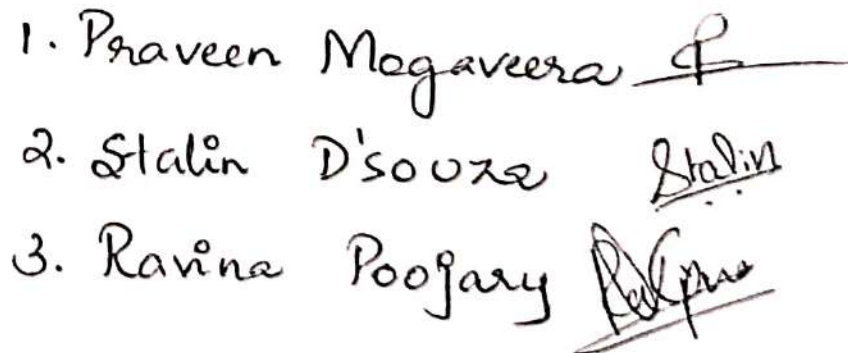 1. Praveen Mogaveera
2. Stalin D'souza Stalin
3. Ravina Poojary